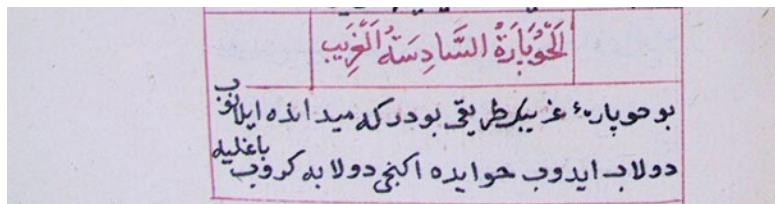 اَلْحُوپَارَةُ السَّادِسَةُ الْغَرِيبِ
بو حوپارهٔ غريبك طريقى بودر كه ميدانده ايلانوب
دولاب ايدوب حوايده اكنجى دولابه كروب باغليه